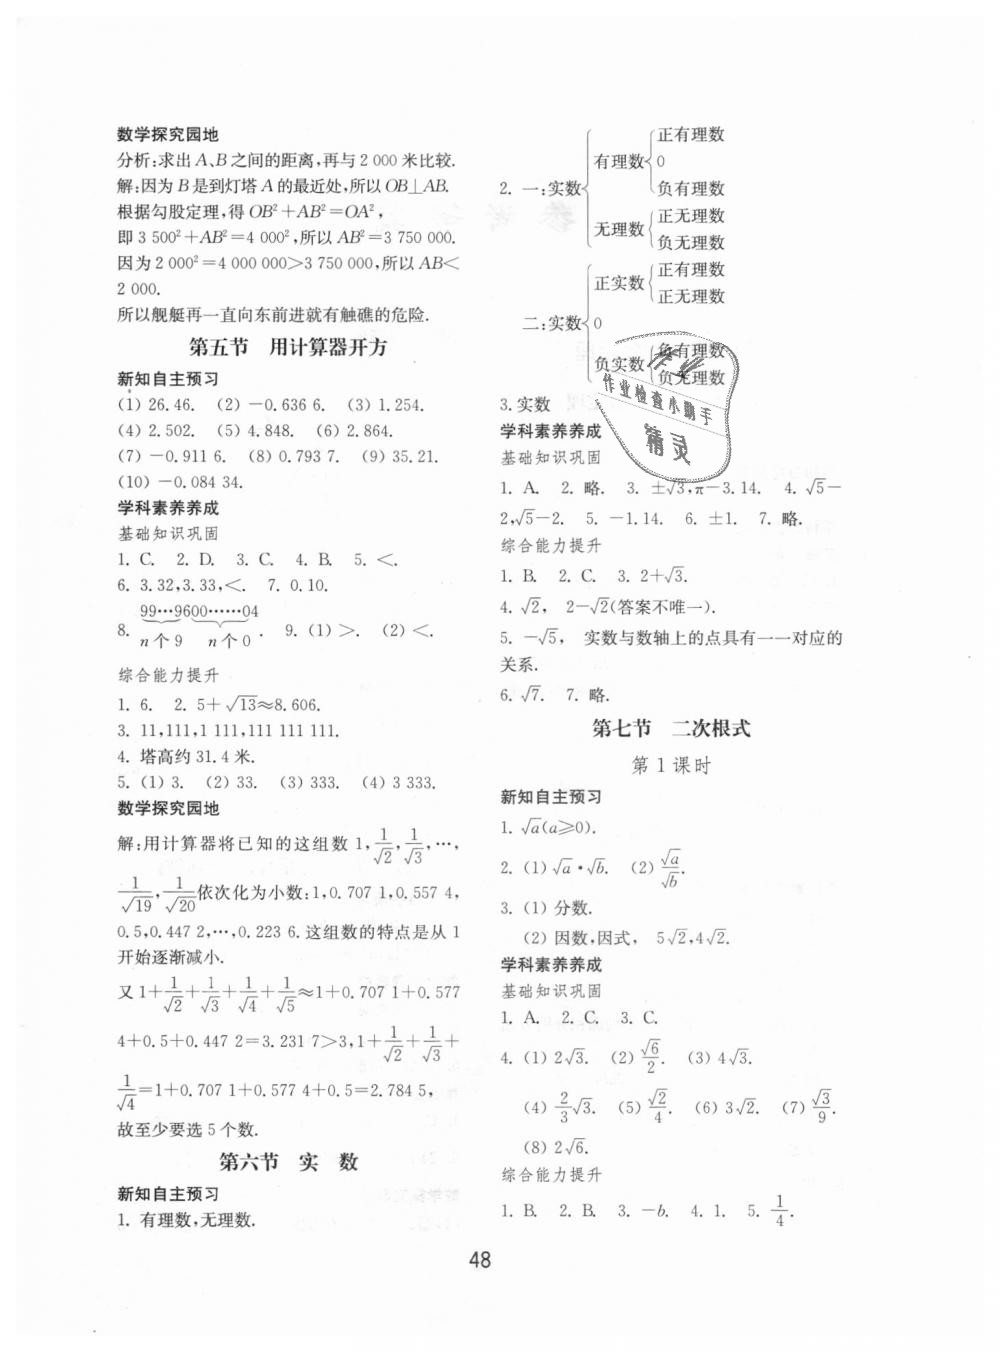 数学探究园地
分析:求出A、B之间的距离,再与2 000米比较.
解:因为B是到灯塔A的最近处,所以OB⊥AB.
根据勾股定理,得OB²+AB²=OA²,
即3 500²+AB²=4 000²,所以AB²=3 750 000.
因为2 000²=4 000 000>3 750 000,所以AB<
2 000.
所以舰艇再一直向东前进就有触礁的危险.
第五节 用计算器开方
新知自主预习
(1) 26.46. (2) -0.636 6. (3) 1.254.
(4) 2.502. (5) 4.848. (6) 2.864.
(7) -0.911 6. (8) 0.793 7. (9) 35.21.
(10) -0.084 34.
学科素养养成
基础知识巩固
1. C. 2. D. 3. C. 4. B. 5. <.
6. 3.32,3.33,<. 7. 0.10.
8. 99…9600……04 . 9. (1) >. (2) <.
n个9 n个0
综合能力提升
1. 6. 2. 5+√13≈8.606.
3. 11,111,1 111,111 111 111.
4. 塔高约31.4米.
5. (1) 3. (2) 33. (3) 333. (4) 3 333.
数学探究园地
解:用计算器将已知的这组数1,1/√2,1/√3,…,
1/√19,1/√20依次化为小数:1,0.707 1,0.557 4,
0.5,0.447 2,…,0.223 6.这组数的特点是从1
开始逐渐减小.
又1+1/√2+1/√3+1/√4+1/√5≈1+0.707 1+0.577
4+0.5+0.447 2=3.231 7>3,1+1/√2+1/√3+
1/√4=1+0.707 1+0.577 4+0.5=2.784 5,
故至少要选5个数.
第六节 实 数
新知自主预习
1. 有理数,无理数.
2. 一:实数
有理数
正有理数
0
负有理数
无理数
正无理数
负无理数
二:实数
正实数
正有理数
正无理数
0
负实数
负有理数
负无理数
作业
作业检查小助手
精灵
3. 实数
学科素养养成
基础知识巩固
1. A. 2. 略. 3. ±√3,π-3.14. 4. √5-
2,√5-2. 5. -1.14. 6. ±1. 7. 略.
综合能力提升
1. B. 2. C. 3. 2+√3.
4. √2, 2-√2(答案不唯一).
5. -√5, 实数与数轴上的点具有一一对应的
关系.
6. √7. 7. 略.
第七节 二次根式
第1课时
新知自主预习
1. √a(a≥0).
2. (1) √a·√b. (2) √a/√b.
3. (1) 分数.
(2) 因数,因式, 5√2,4√2.
学科素养养成
基础知识巩固
1. A. 2. C. 3. C.
4. (1) 2√3. (2) √6/2. (3) 4√3.
(4) 2/3√3. (5) √2/4. (6) 3√2. (7) √3/9.
(8) 2√6.
综合能力提升
1. B. 2. B. 3. -b. 4. 1. 5. 1/4.
48